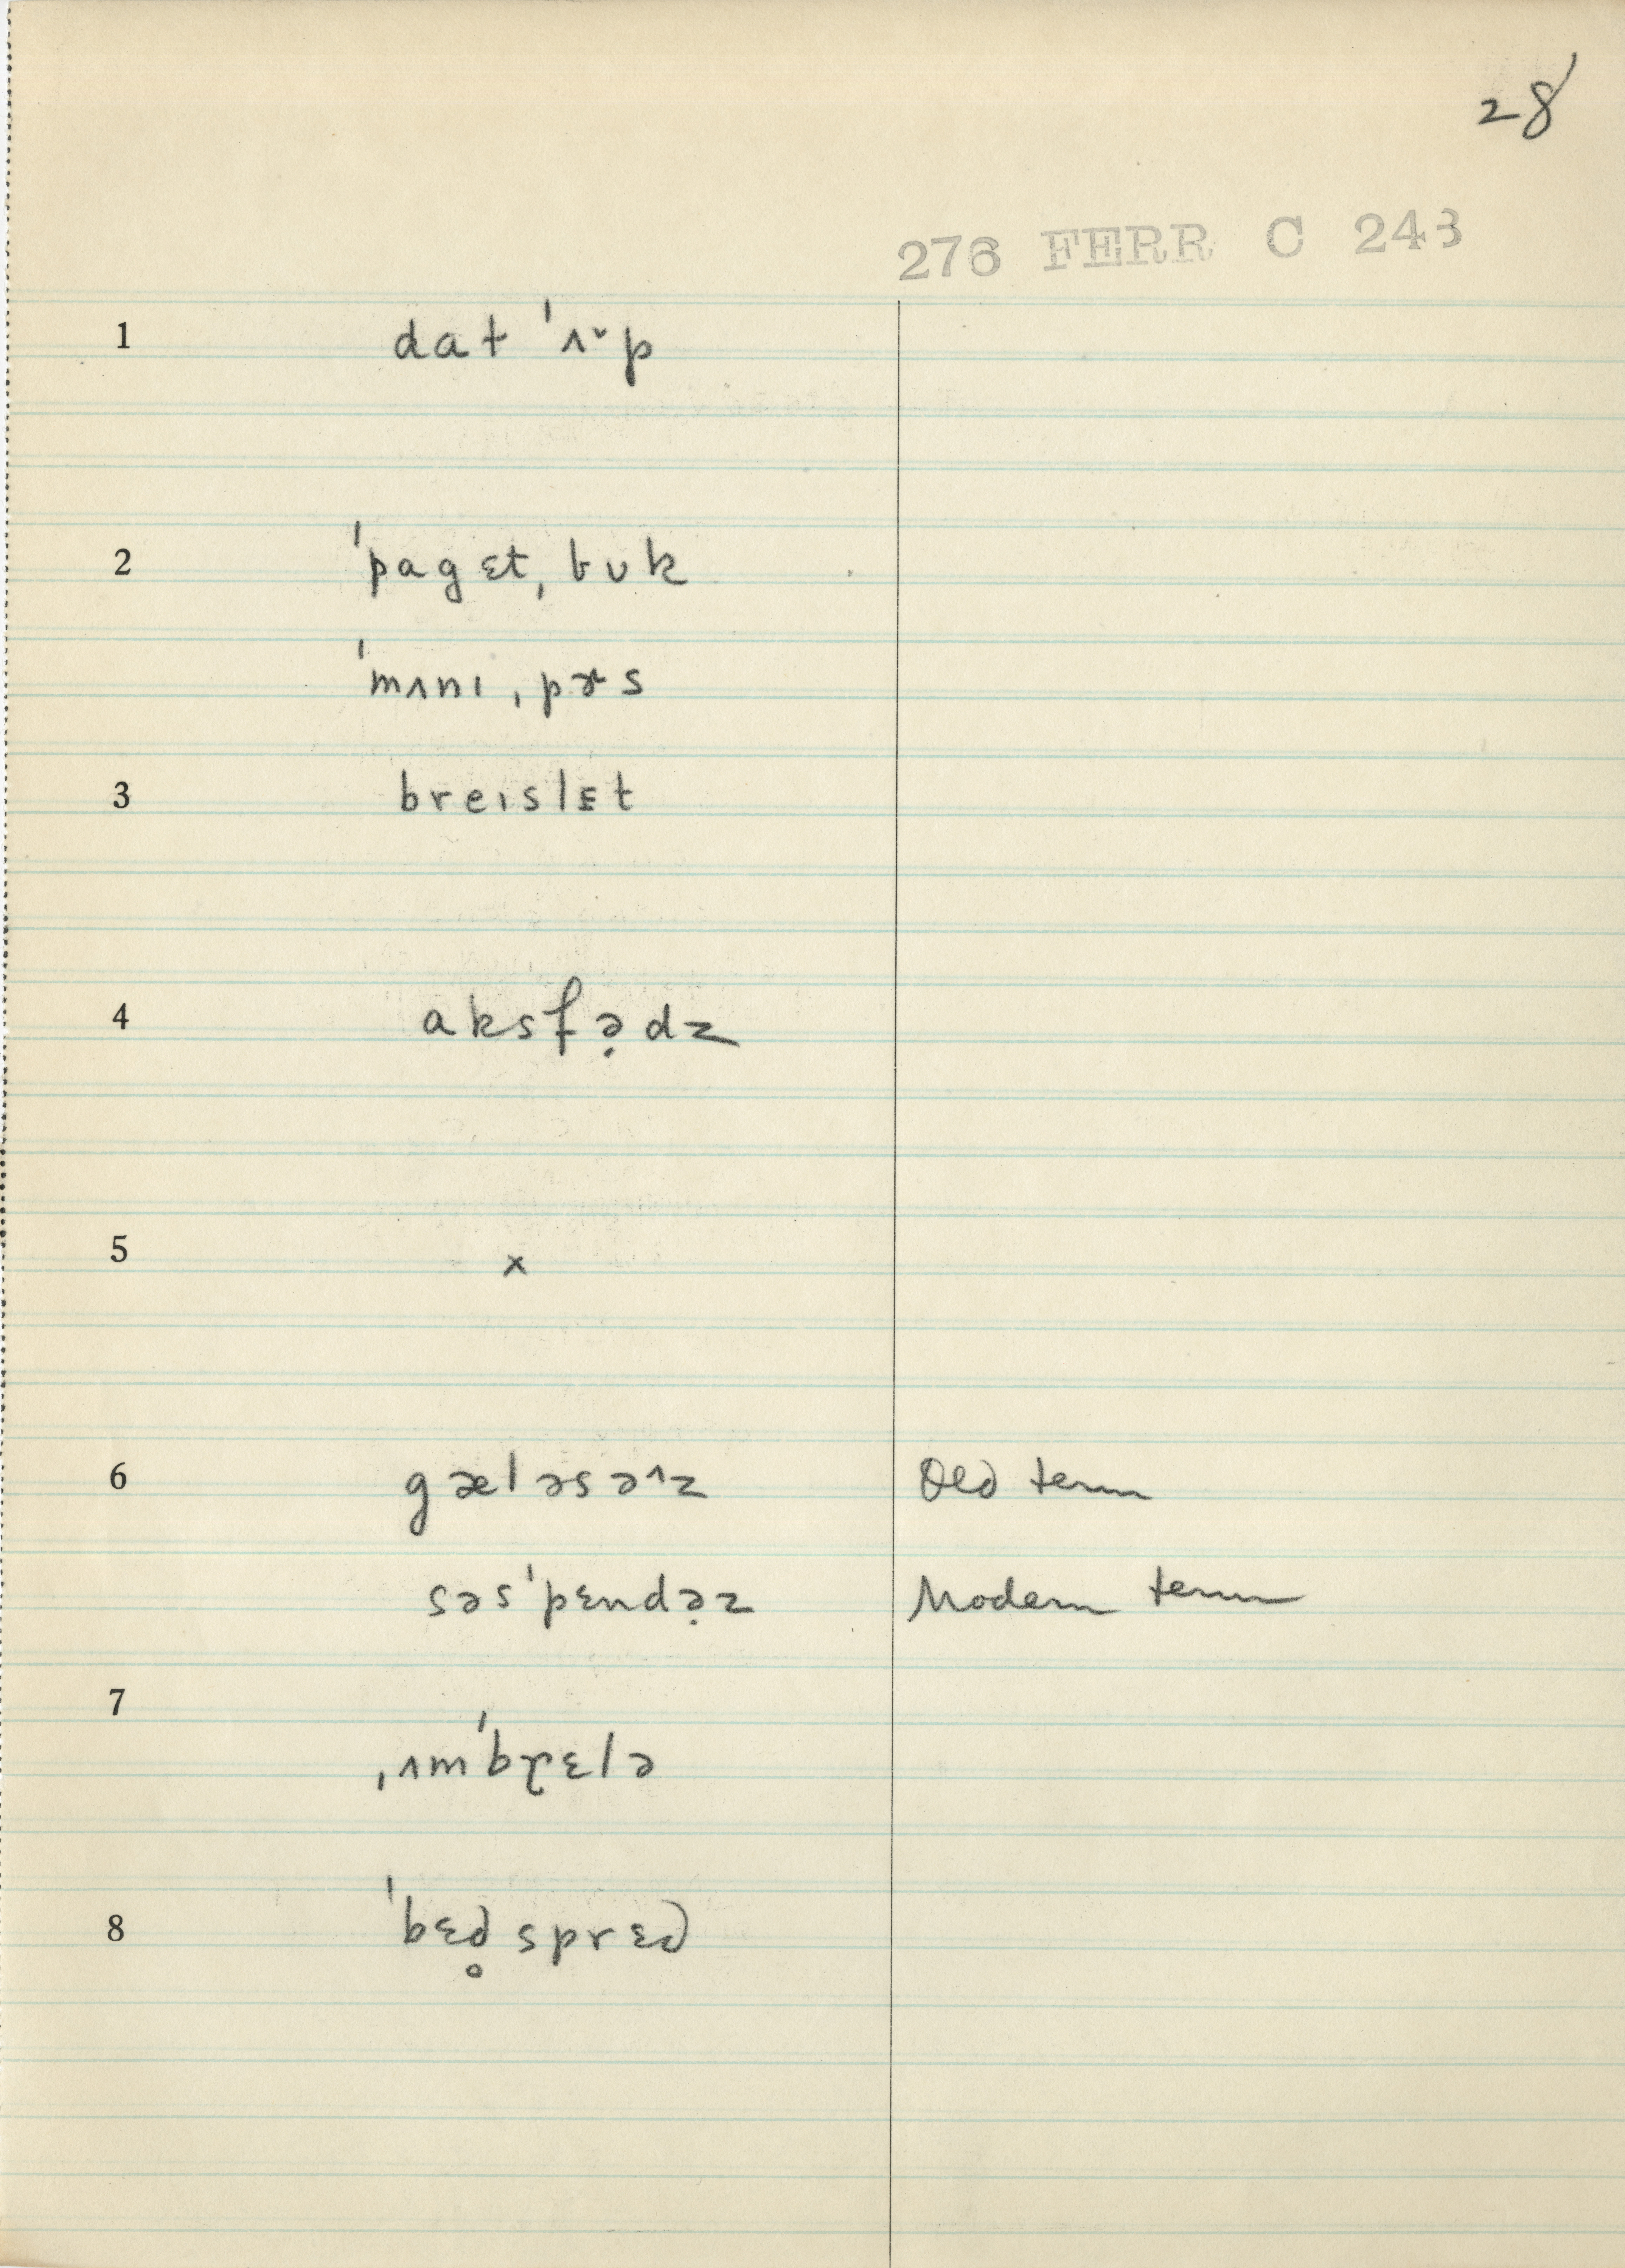 28
276 FERR C 243
1 dat ˈʌ˅p
2 ˈpagɛt ˌbuk
ˈmʌnɪ ˌpɚs
3 breɪslɛt
4 aksfə̣dz
5 x
6 gæləsə^z Old term
səsˈpɛndə̣z Modern term
7 ˌʌmˈbrɛlə
8 ˈbɛd̥sprɛd